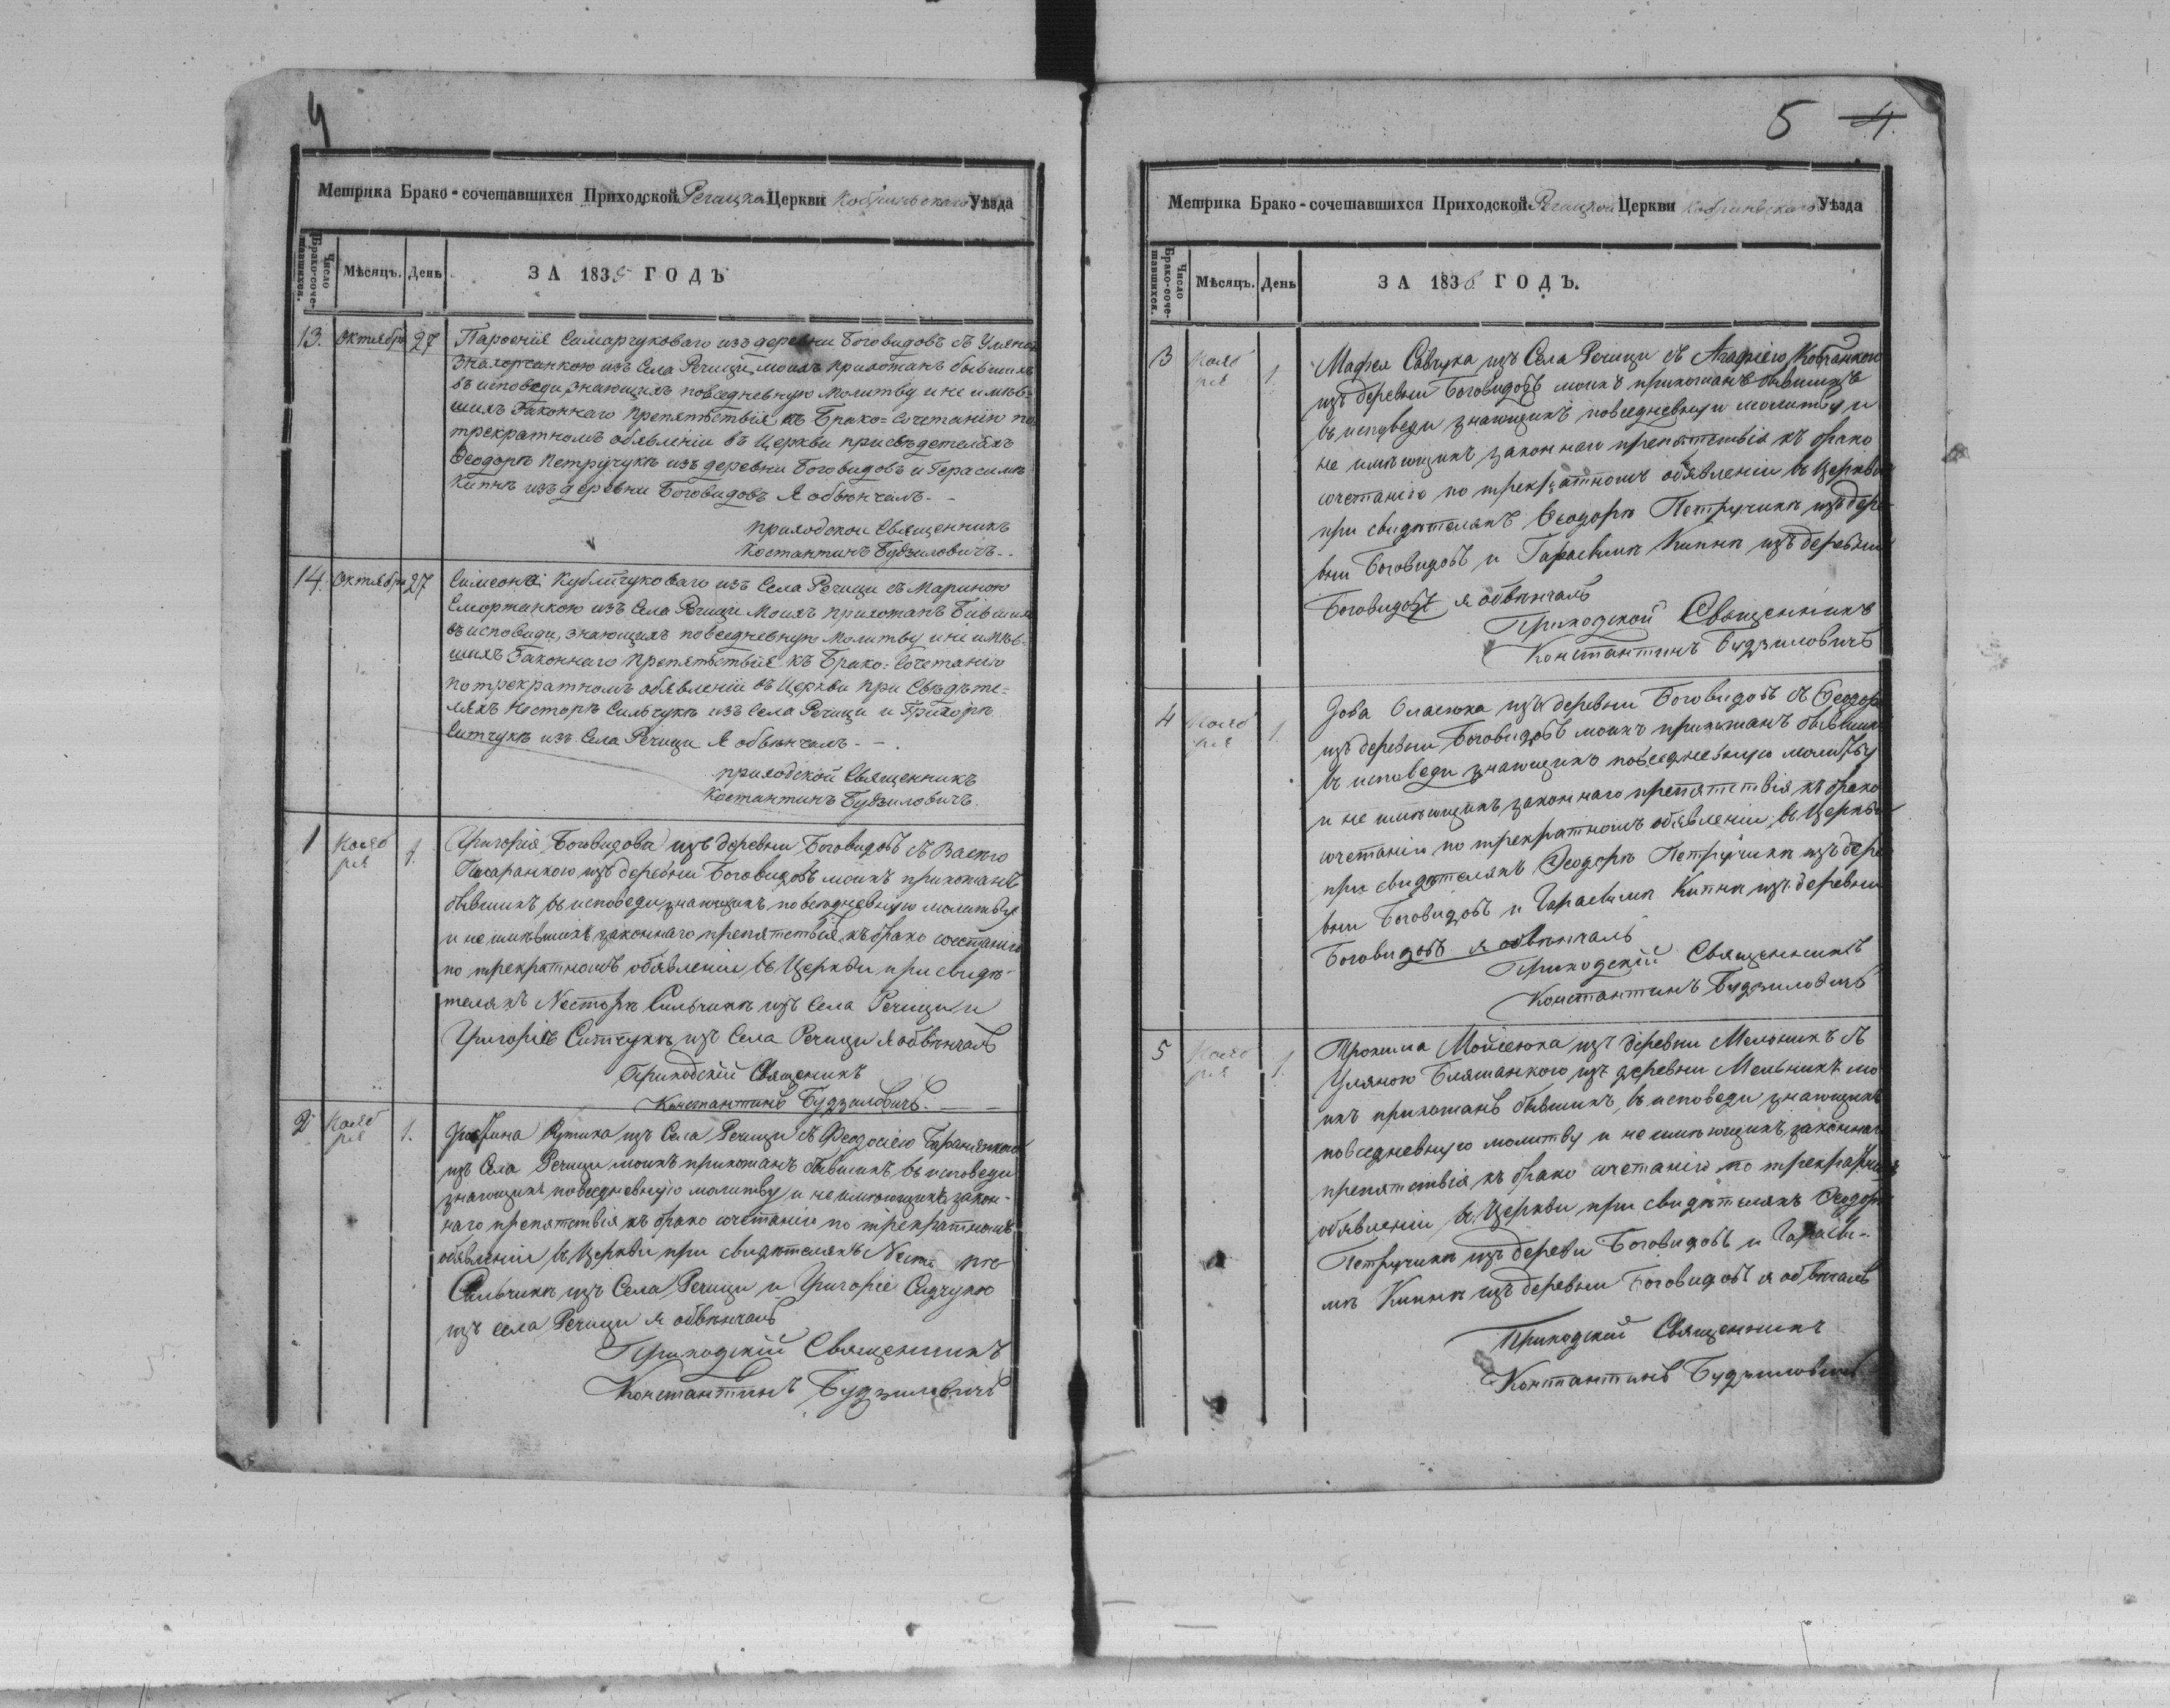 4
Метрика Брако-сочетавшихся Приходской Речицкой Церкви Кобринскаго Уѣзда
Число Брако-соче-тавшихся.
Мѣсяцъ.
День
ЗА 1835 ГОДЪ
13. Октября 27
изъ деревни Боговидовъ съ
изъ Села Речицы моихъ прихожанъ бывшихъ
въ исповеди, знающихъ повседневную молитву и не имѣв-
шихъ Законнаго препятствія къ Брако=Сочетанію по
трекратномъ обявленіи въ Церкви при свѣдетеляхъ
Ѳеодорѣ Петручукѣ изъ деревни Боговидовъ и Герасимѣ
Кипнѣ изъ деревни Боговидовъ Я обвѣнчалъ.
приходской Священникъ
Костантинъ Будзиловичъ.
14. Октября 27
изъ Села Речици съ Мариною
изъ Села Речици Моихъ прихожанъ Бывшихъ
въ исповеди, знающихъ повседневную Молитву и не имѣв-
шихъ Законнаго препятствія къ Брако=Сочетанію
по трекратномъ обявленіи въ Церкви при Свѣдѣте=
ляхъ Несторѣ Сильчукѣ изъ Села Речици и Григорѣ
Ситчукѣ изъ Села Речици Я обвѣнчалъ.
приходской Священникъ
Костантинъ Будзиловичъ.
1 Нояб
рія 1.
Григорія Боговидова изъ деревни Боговидовъ съ
изъ деревни Боговидовъ моихъ прихожанъ
бывшихъ въ исповеди знающихъ повседневную молитву
и не имѣвшихъ законнаго препятствія къ брако сочетанію
по трекратномъ обявленіи въ Церкви при свидѣ-
теляхъ Несторѣ Сильчикѣ изъ Села Речици и
Григоріѣ Ситчукѣ изъ Села Речици я обвѣнчалъ
Приходскій Священикъ
Константинъ Будзиловичъ.
2 Нояб
рія 1.
изъ Села Речици съ Феодосіею
изъ Села Речици моихъ прихожанъ бывшихъ въ исповеди
знающихъ повседневную молитву и не имѣющихъ закон-
наго препятствія къ брако сочетанію по трекратномъ
обявленіи въ Церкви при свидѣтеляхъ
Сильчикѣ изъ Села Речици и Григоріе Сидчукѣ
изъ села Речици я обвѣнчалъ
Приходскій Священникъ
Константинъ Будзиловичъ
5 4.
Метрика Брако-сочетавшихся Приходской Речицкой Церкви Кобринскаго Уѣзда
Число Брако-соче-тавшихся.
Мѣсяцъ.
День
ЗА 1836 ГОДЪ.
3 Нояб
рія 1.
Мафея Савчука изъ Села Речици съ Агафіею
изъ деревни Боговидовъ моихъ прихожанъ бывшихъ
въ исповеди знающихъ повседневную молитву и
не имѣющихъ законнаго препятствія къ брако
сочетанію по трекратномъ обявленіи въ Церкви
при свидѣтеляхъ Ѳеодорѣ Петручикѣ изъ дере-
вни Боговидовъ и Гарасимѣ Кипнѣ изъ деревни
Боговидовъ я обвѣнчалъ
Приходской Священникъ
Константинъ Будзиловичъ
4 Нояб
рія 1.
изъ деревни Боговидовъ съ
изъ деревни Боговидовъ моихъ прихожанъ бывшихъ
въ исповеди знающихъ повседневную молитву
и не имѣющихъ законнаго препятствія къ брако
сочетанію по трекратномъ обявленіи въ Церкви
при свидѣтеляхъ Ѳеодорѣ Петручикѣ изъ дере
вни Боговидовъ и Гарасимѣ Кипнѣ изъ деревни
Боговидовъ я обвѣнчалъ
Приходскій Священникъ
Константинъ Будзиловичъ
5 Нояб
рія 1.
Прокипа Мойсеюка изъ деревни Мельникъ съ
Уляною изъ деревни Мельникъ мо
ихъ прихожанъ бывшихъ въ исповеди знающихъ
повседневную молитву и не имѣющихъ законнаго
препятствія къ брако сочетанію по трекратномъ
обявленіи въ Церкви при свидѣтеляхъ Ѳеодорѣ
Петручикѣ изъ деревни Боговидовъ и Гараси-
мѣ Кипнѣ изъ деревни Боговидовъ я обвѣнчалъ
Приходскій Священникъ
Константинъ Будзиловичъ